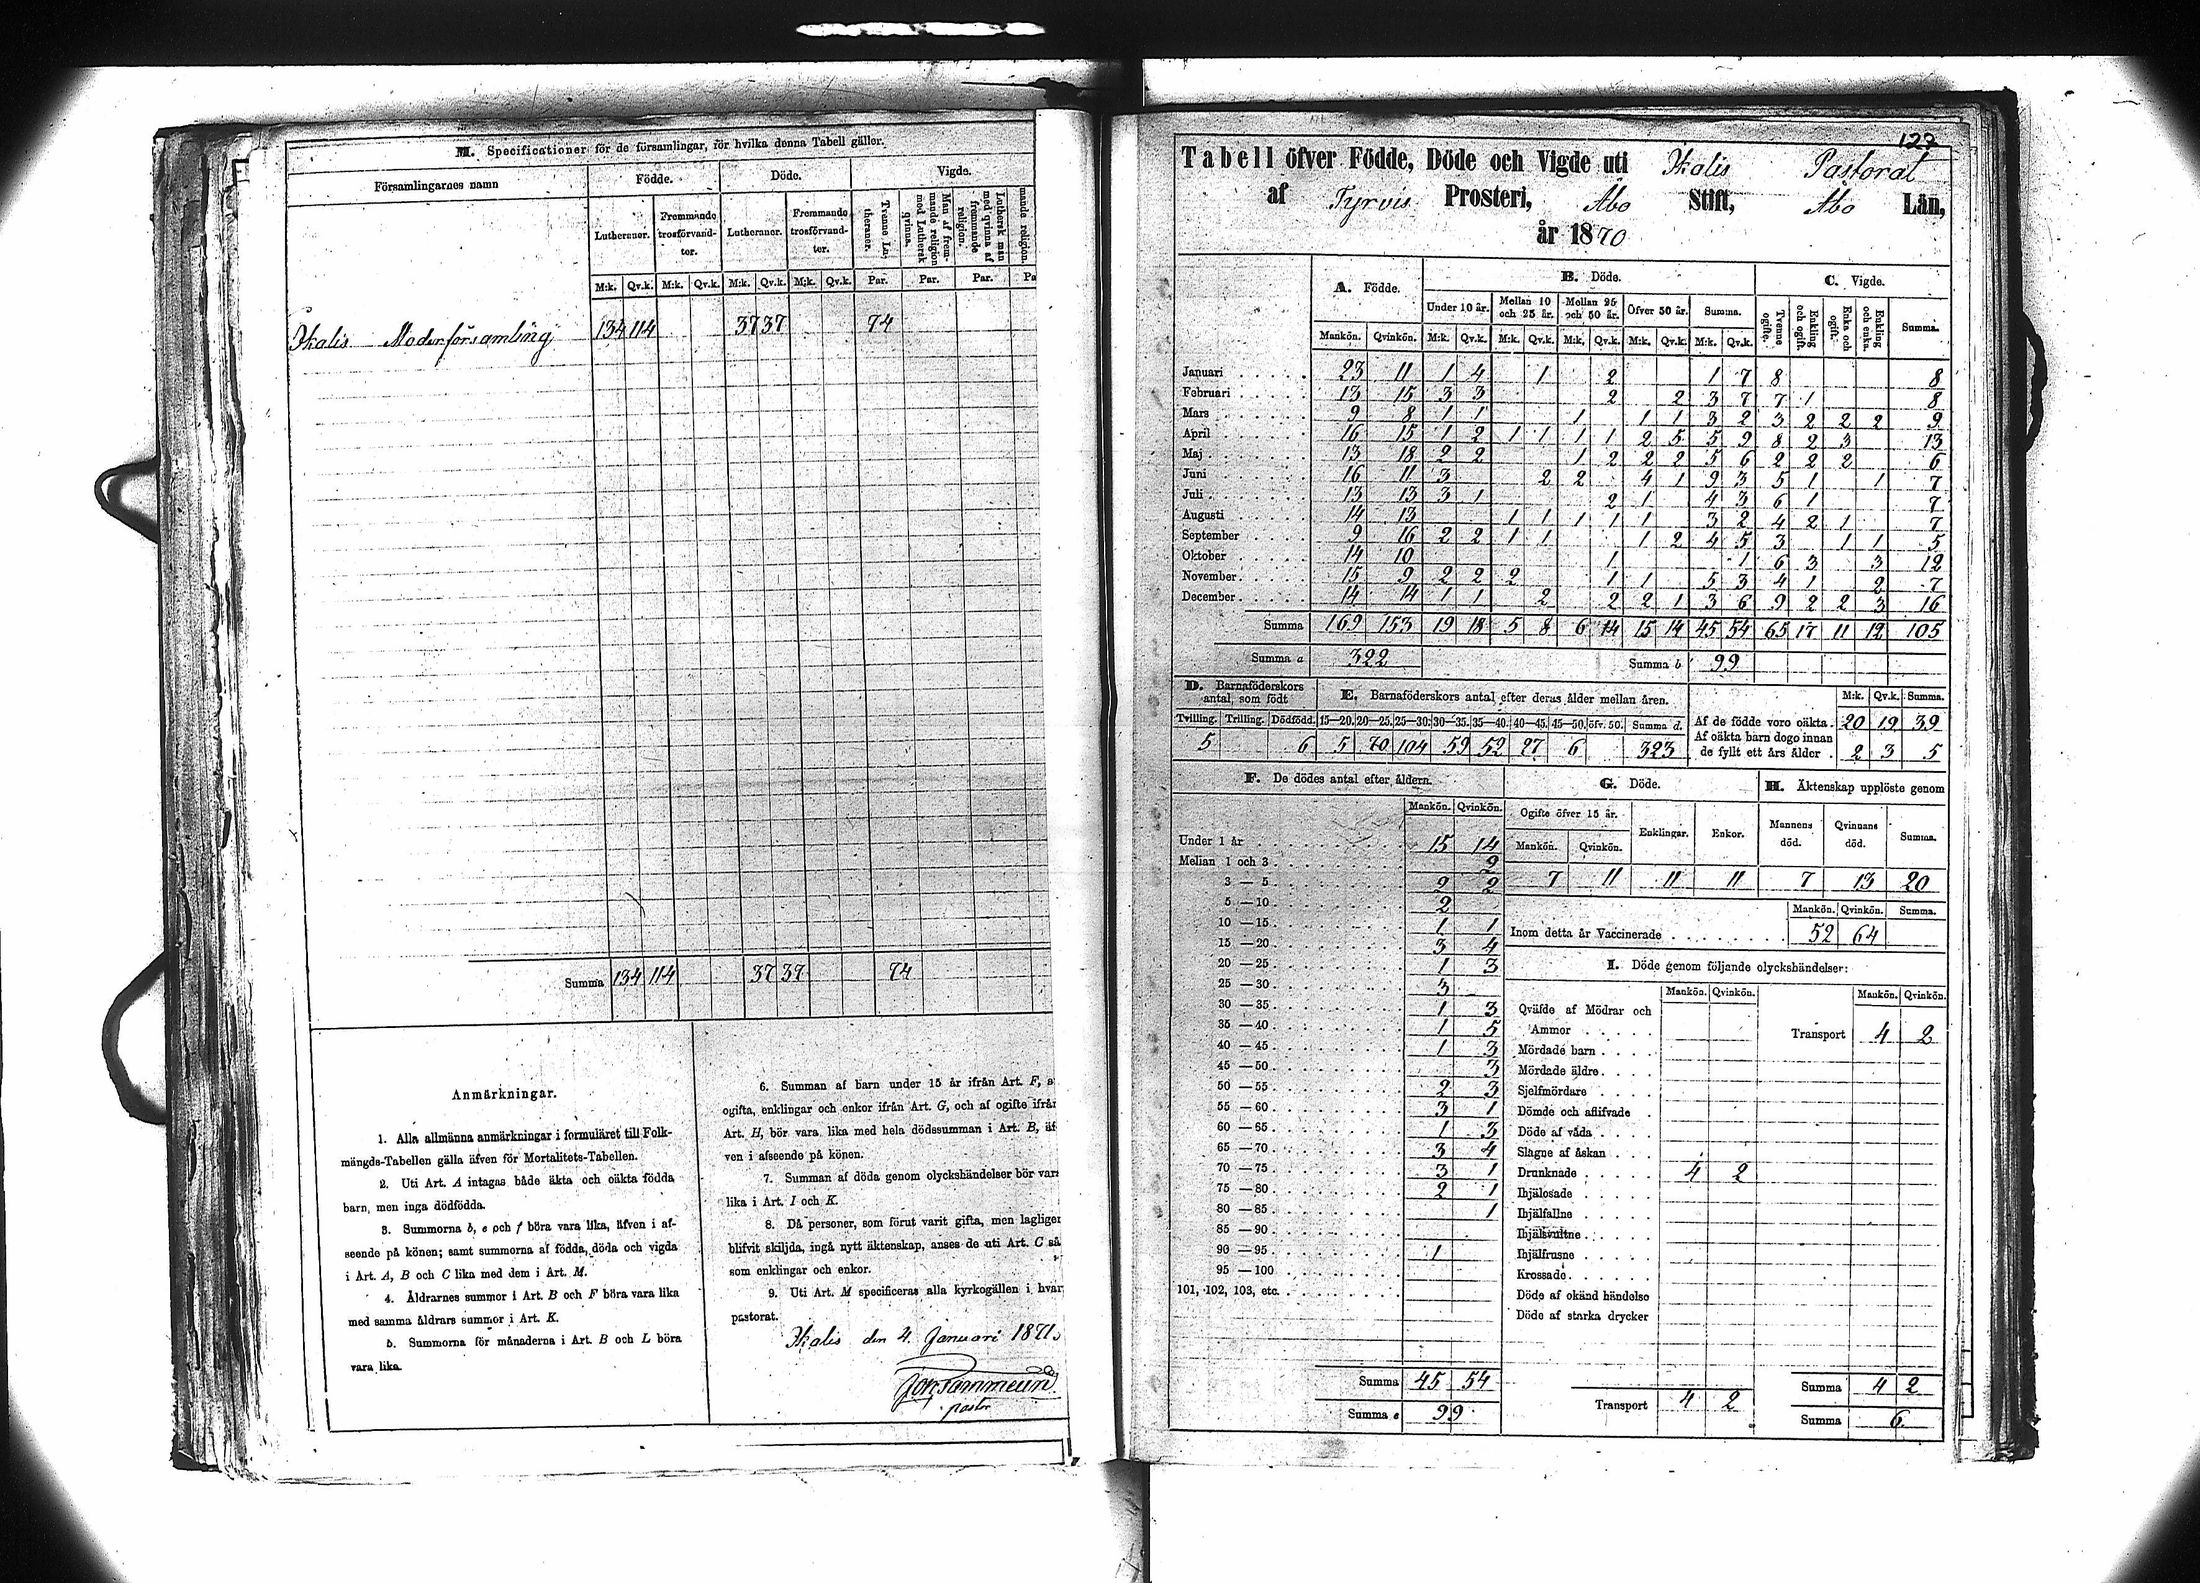 M. Specificationer för de församlingar, för hvilka denna Tabell gäller.
Församlingarnes namn Födde. Döde. Vigde.
Lutheraner. Fremmande trosförvandter. Lutheraner. Fremmande trosförvandter. Tvenne Lutheraner. Man af fremmande religion med Luthersk qvinna. Luthersk man med qvinna af fremmande religion. mande religion.
M:k. Qv.k. M:k. Qv.k. M:k. Qv.k. M:k. Qv.k. Par. Par. Par. Pa
Ikalis Moderförsamling 134 114 37 37 74
Summa 134 114 37 37 74
Anmärkningar.
1. Alla allmänna anmärkningar i formuläret till Folk-
mängds-Tabellen gälla äfven för Mortalitets-Tabellen.
2. Uti Art. A intagas både äkta och oäkta födda
barn, men inga dödfödda.
3. Summorna b, e och f böra vara lika, äfven i af-
seende på könen; samt summorna af födda, döda och vigda
i Art. A, B och C lika med dem i Art. M.
4. Åldrarnes summor i Art. B och F böra vara lika
med samma åldrars summor i Art. K.
5. Summorna för månaderna i Art. B och L böra
vara lika.
6. Summan af barn under 15 år ifrån Art. F, a
ogifta, enklingar och enkor ifrån Art. G, och af ogifte ifrån
Art. H, bör vara lika med hela dödssumman i Art. B, äf-
ven i afseende på könen.
7. Summan af döda genom olyckshändelser bör vara
lika i Art. I och K.
8. Då personer, som förut varit gifta, men lagligen
blifvit skiljda, ingå nytt äktenskap, anses de uti Art. C så
som enklingar och enkor.
9. Uti Art. M specificeras alla kyrkogällen i hvar
pastorat.
Ikalis den 4. Januari 1871.
pastor
127
Tabell öfver Födde, Döde och Vigde uti Ikalis Pastorat
af Tyrvis Prosteri, Åbo Stift, Åbo Län,
år 1870
A. Födde. B. Döde. C. Vigde.
Under 10 år. Mellan 10 och 25 år. Mellan 25 och 50 år. Öfver 50 år. Summa. Tvenne ogifte. Enkling och ogift. Enka och ogift. Enkling och enka. Summa.
Mankön. Qvinkön. M:k. Qv.k. M:k. Qv.k. M:k. Qv.k. M:k. Qv.k. M:k. Qv.k.
Januari 23 11 1 4 1 2 1 7 8 8
Februari 13 15 3 3 2 2 3 7 7 1 8
Mars 9 8 1 1 1 1 1 3 2 3 2 2 2 9
April 16 15 1 2 1 1 1 1 2 5 5 9 8 2 3 13
Maj 13 18 2 2 1 2 2 2 5 6 2 2 2 6
Juni 16 11 3 2 2 4 1 9 3 5 1 1 7
Juli 13 13 3 1 2 1 4 3 6 1 7
Augusti 14 13 1 1 1 1 1 3 2 4 2 1 7
September 9 16 2 2 1 1 1 2 4 5 3 1 1 5
Oktober 14 10 1 1 6 3 3 12
November 15 9 2 2 2 1 1 5 3 4 1 2 7
December 14 14 1 1 2 2 2 1 3 6 9 2 2 3 16
Summa 169 153 19 18 5 8 6 14 15 14 45 54 65 17 11 12 105
Summa a 322 Summa b 99
D. Barnaföderskors antal, som födt E. Barnaföderskors antal efter deras ålder mellan åren. M:k. Qv.k. Summa.
Tvilling. Trilling. Dödfödd. 15—20. 20—25. 25—30. 30—35. 35—40. 40—45. 45—50. öfv. 50. Summa d.
5 6 5 70 104 59 52 27 6 323
Af de födde voro oäkta. 20 19 39
Af oäkta barn dogo innan
de fyllt ett års ålder. 2 3 5
F. De dödes antal efter åldern.
Mankön. Qvinkön.
Under 1 år 15 14
Mellan 1 och 3 2
3 — 5 2 2
5 — 10 2
10 — 15 1 1
15 — 20 3 4
20 — 25 1 3
25 — 30 3
30 — 35 1 3
35 — 40 1 5
40 — 45 1 3
45 — 50 3
50 — 55 2 3
55 — 60 3 1
60 — 65 1 3
65 — 70 3 4
70 — 75 3 1
75 — 80 2 1
80 — 85 1
85 — 90
90 — 95 1
95 — 100
101, 102, 103, etc.
Summa 45 54
Summa e 99
G. Döde.
Ogifte öfver 15 år. Enklingar. Enkor.
Mankön. Qvinkön.
7 11 11 11
H. Äktenskap upplöste genom
Mannens död. Qvinnans död. Summa.
7 13 20
Mankön. Qvinkön. Summa.
Inom detta år Vaccinerade 52 64
I. Döde genom följande olyckshändelser:
Mankön. Qvinkön. Mankön. Qvinkön.
Qväfde af Mödrar och
Ammor
Transport 4 2
Mördade barn
Mördade äldre
Sjelfmördare
Dömde och aflifvade
Döde af våda
Slagne af åskan
Drunknade 4 2
Ihjälosade
Ihjälfallne
Ihjälsvultne
Ihjälfrusne
Krossade
Döde af okänd händelse
Döde af starka drycker
Transport 4 2
Summa 4 2
Summa 6